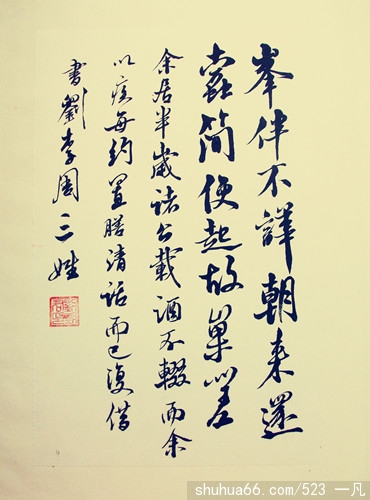 峯伴不譁朝来還
蠹简便起故巢嗟
余居半歲諸公載酒不輟而余
以疾每約置膳清話而已復借
書劉李周三姓
shuhua66.com/523 一凡